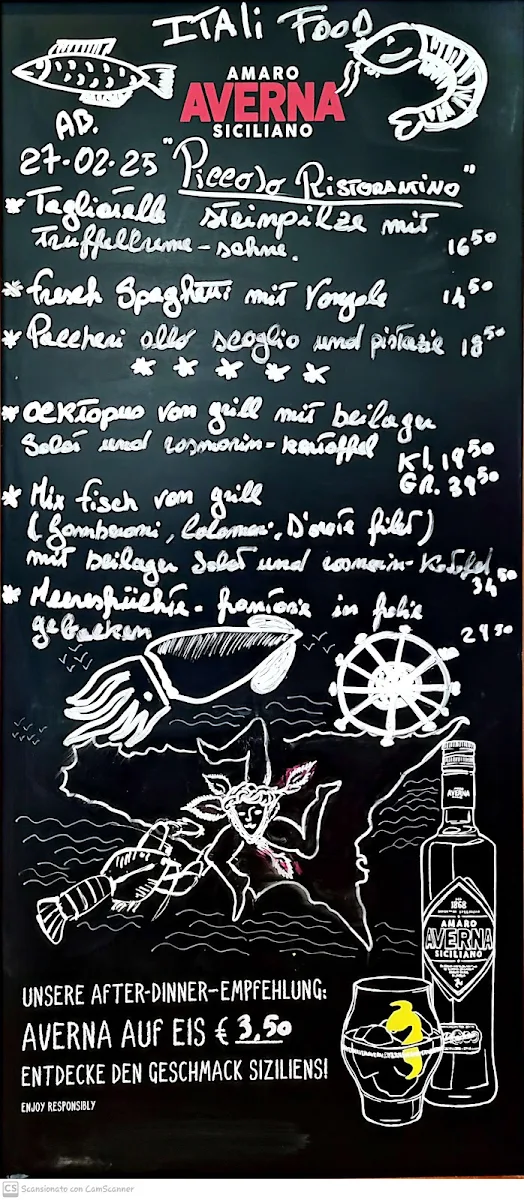 ITALi FOOD
AMARO
AVERNA
SICILIANO
AB.
27·02·25 "Piccolo RISTORANTINO"
* Tagliatelle steinpilze mit
Truffelcreme-sahne. 16⁵⁰
* fresch Spaghetti mit Vongole 14⁵⁰
* Paccheri allo scoglio und pistazie 18⁵⁰
* * * * *
* OCKTOPUS von grill mit beilager
Salat und rosmarin-kartoffel
Kl. 19⁵⁰
GR. 39⁵⁰
* Mix fisch von grill
(Gamberoni, Calamari, D'orata filet)
mit beilager Salat und rosmarin-
34,⁵⁰
* Meeresfrüchte-fantasie in folie
gebacken 29⁵⁰
AVERNA
1868
AMARO
AVERNA
SICILIANO
UNSERE AFTER-DINNER-EMPFEHLUNG:
AVERNA AUF EIS € 3,50
ENTDECKE DEN GESCHMACK SIZILIENS!
ENJOY RESPONSIBLY
CS Scansionato con CamScanner